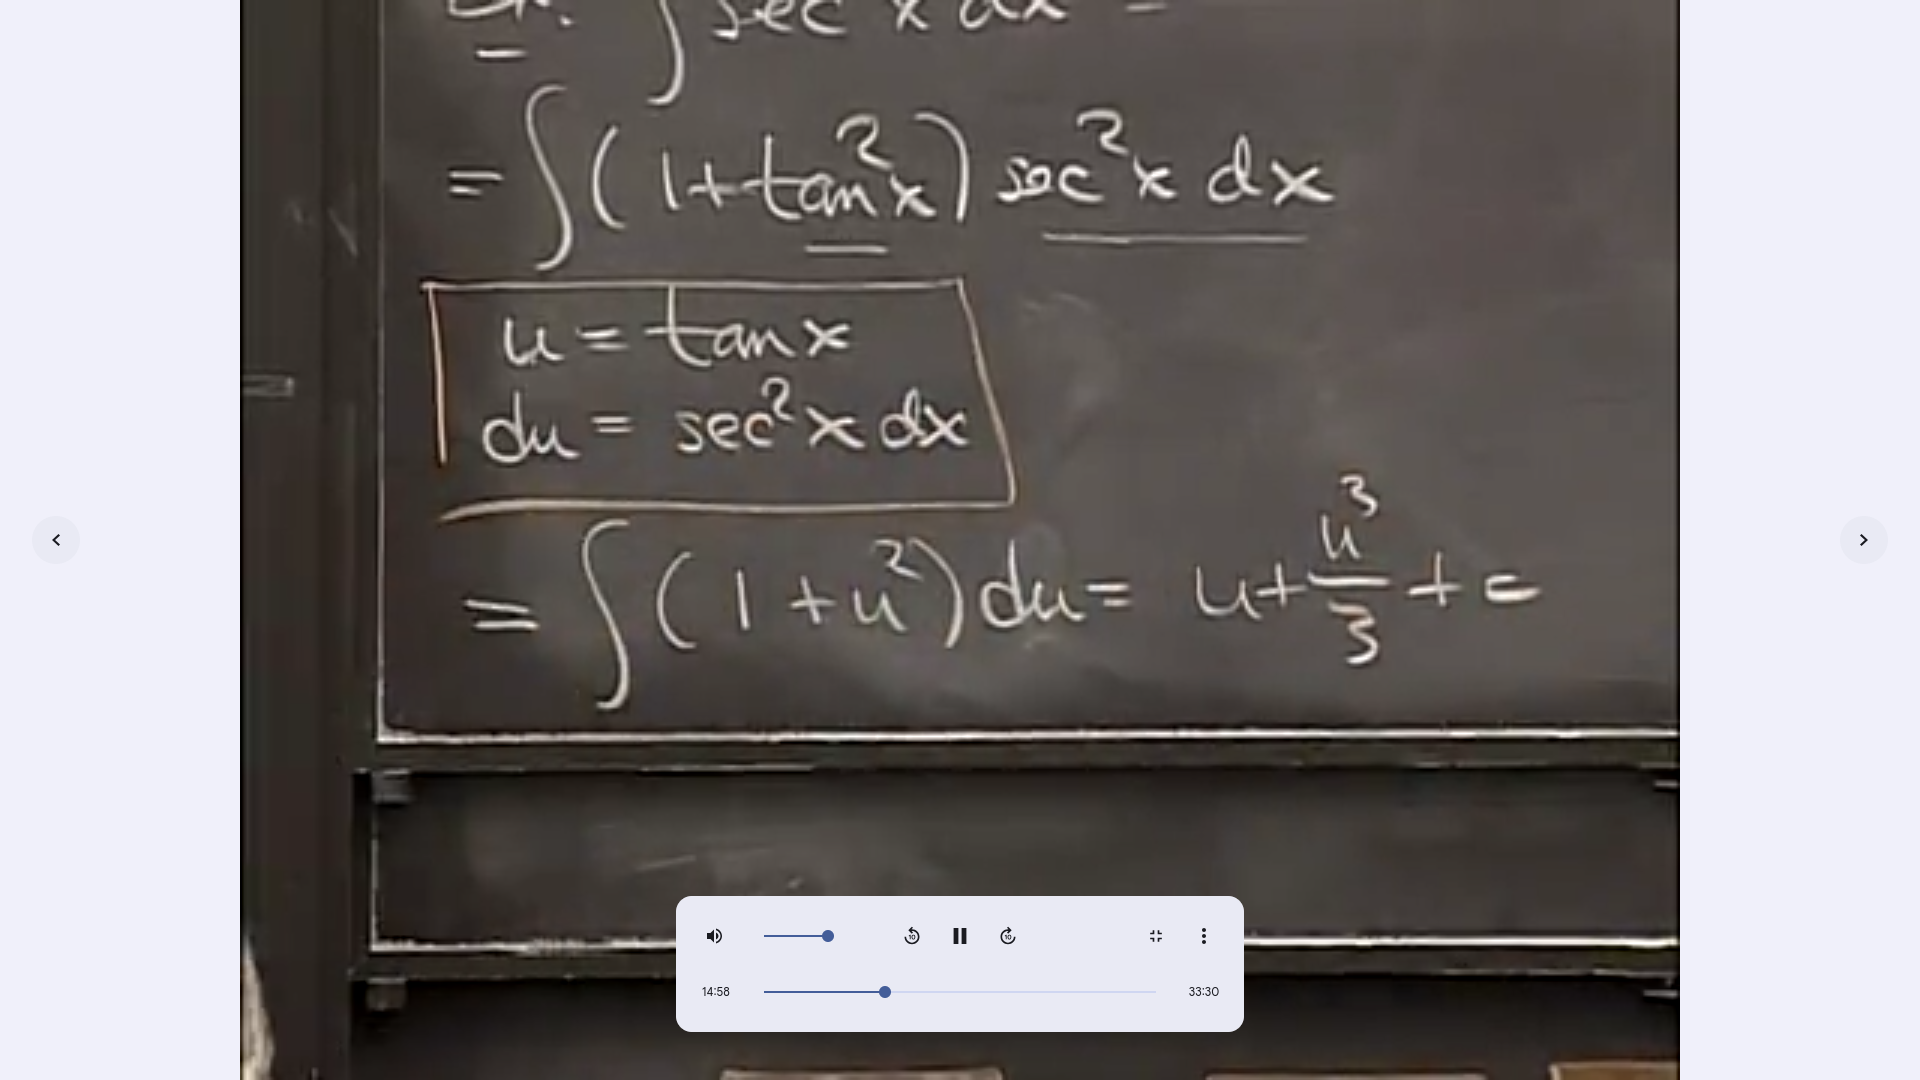 Ex. ∫ sec x dx =
= ∫ ( 1 + tan²x ) sec²x dx
u = tan x
du = sec²x dx
= ∫ ( 1 + u² ) du = u + u³/3 + c
10
10
14:58
33:30